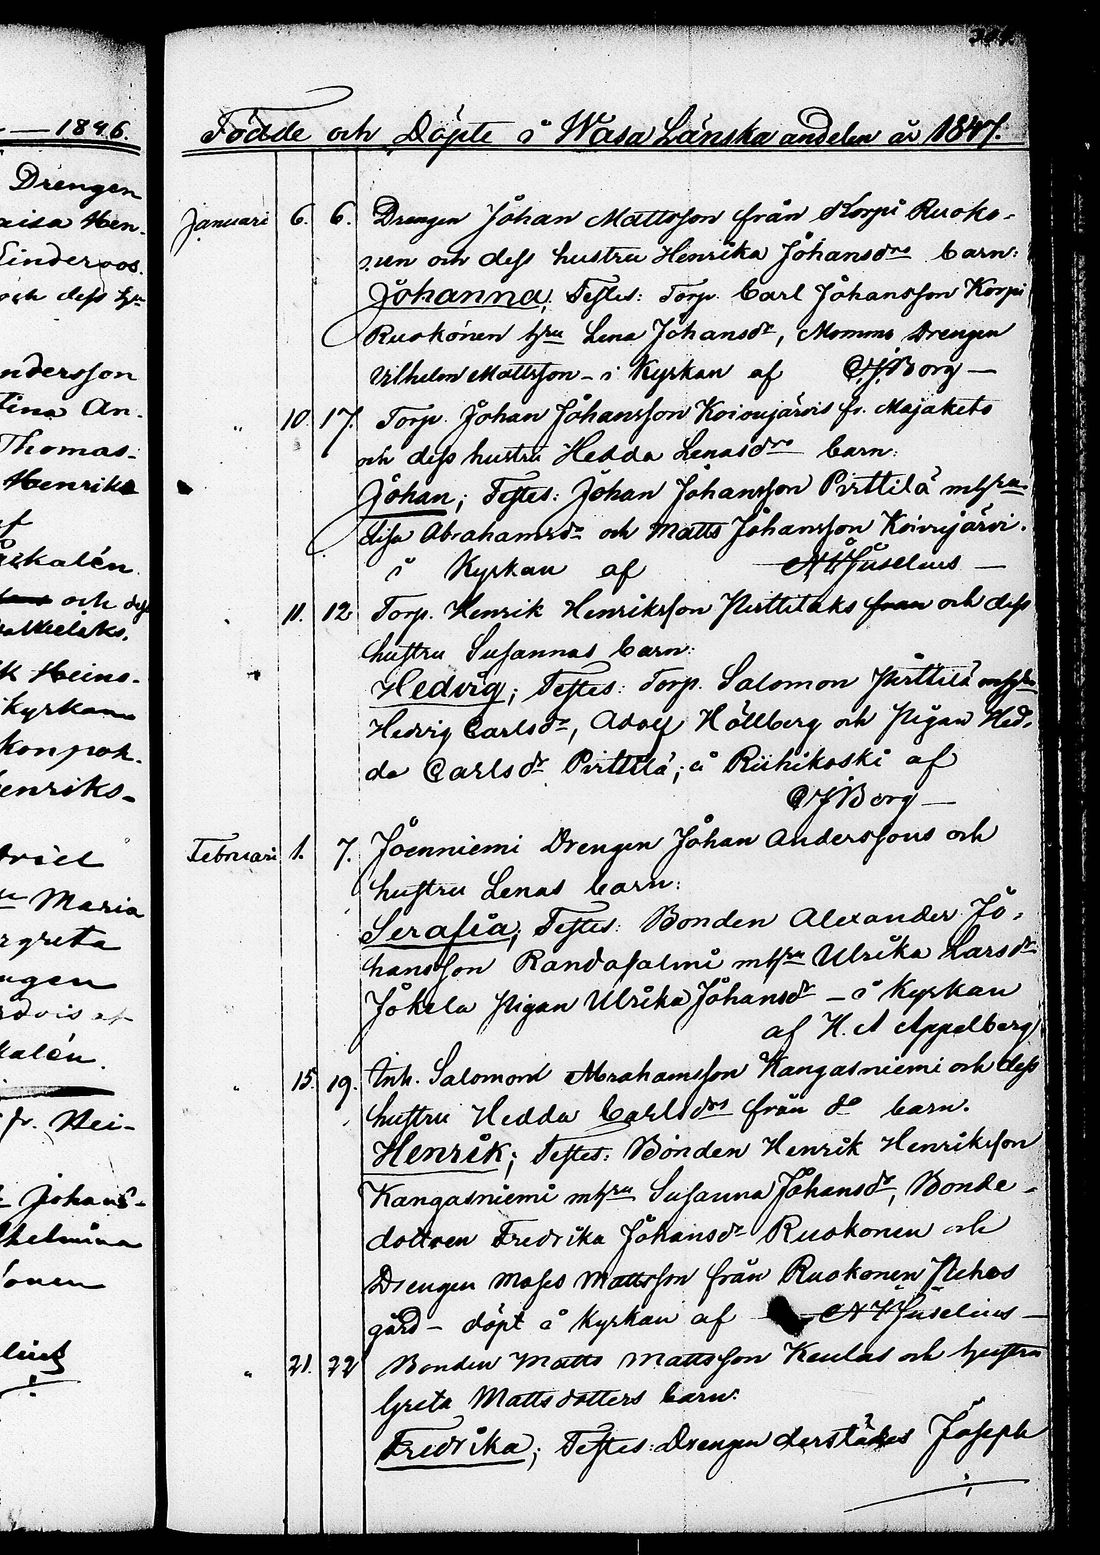 1846.
Drengen
aisa Hen-
Lindroos.
och dess h:u
ndersson
tina An-
Thomas-
Henriks
kalén
och dess
k Heins-
Kyrkan
konpoh-
enriks-
Maria
rgreta
ngen
kalén.
fr. Hei-
Johans-
helmina
onen
Födde och Döpte i Wasa Länska andelen år 1847.
Januari 6. 6. Drengen Johan Mattsson från Korpi Ruoko-
nen och dess hustru Henrika Johansdrs barn:
Johanna; Testes: Torp. Carl Johansson Korpi
Ruokonen hru Lena Johansdr, Mommo Drengen
Vilhelm Mattsson - i Kyrkan af C.J. Borg —
" 10. 17. Torp. Johan Johansson Koivujärvis fr. Majaketo
och dess hustru Hedda Lenasdrs barn:
Johan; Testes: Johan Johansson Pirttilä mhru
Lisa Abrahamsdr och Matts Johansson Koivujärvi.
i Kyrkan af Juselius —
" 11. 12 Torp. Henrik Henriksson Pirttiläks från och dess
hustru Susannas barn:
Hedvig; Testes: Torp. Salomon Pirttilä mhru
Hedvig Carlsdr, Adolf Hällberg och Pigan Hed-
da Carlsdr Pirttilä; i Riihikoski af
C J Borg —
Februari 1. 7. Joenniemi Drengen Johan Anderssons och
hustru Lenas barn:
Serafia; Testes: Bonden Alexander Jo-
hansson Randasalmi mhru Ulrika Larsdr
Jokela Pigan Ulrika Johansdr - i Kyrkan
af H. A Appelberg
" 15. 19. Inh. Salomon Abrahamsson Kangasniemi och dess
hustru Hedda Carlsdrs från do barn.
Henrik; Testes: Bonden Henrik Henriksson
Kangasniemi mhru Susanna Johansdr, Bonde-
dottren Fredrika Johansdr Ruokonen och
Drengen Moses Mattsson från Ruokonen Nehos
gård - döpt i Kyrkan af Juselius —
" 21. 22 Bonden Matts Mattsson Keulas och hustru
Greta Mattsdotters barn:
Fredrika; Testes: Drengen derstädes Joseph